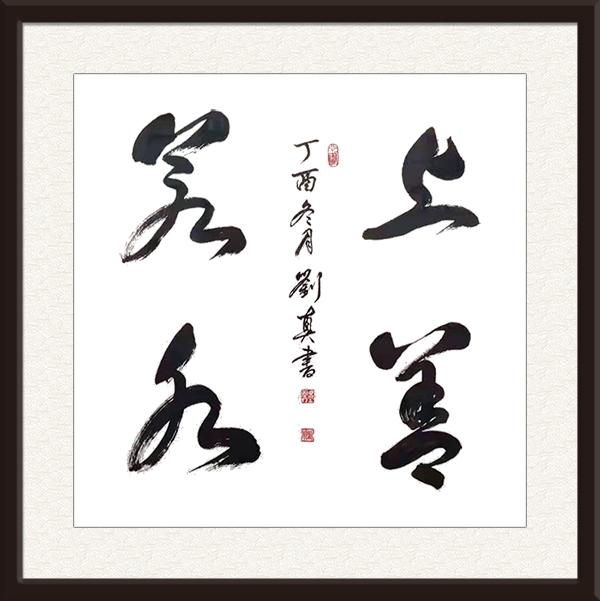 上善
若水
丁酉冬月劉真書